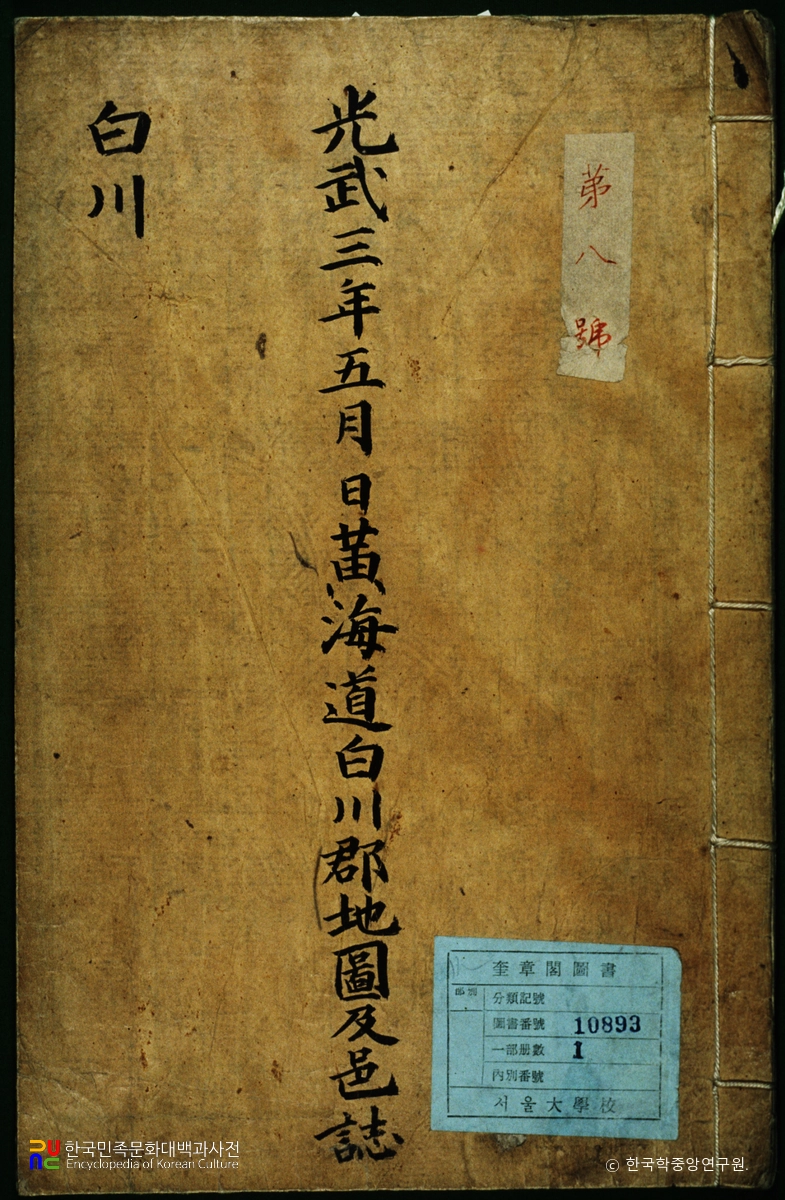 第八號
光武三年五月 日黃海道白川郡地圖及邑誌
白川
奎章閣圖書
部別
分類記號
圖書番號 10893
一部册數 1
內別番號
서울大學校
한국민족문화대백과사전
Encyclopedia of Korean Culture
ⓒ 한국학중앙연구원.